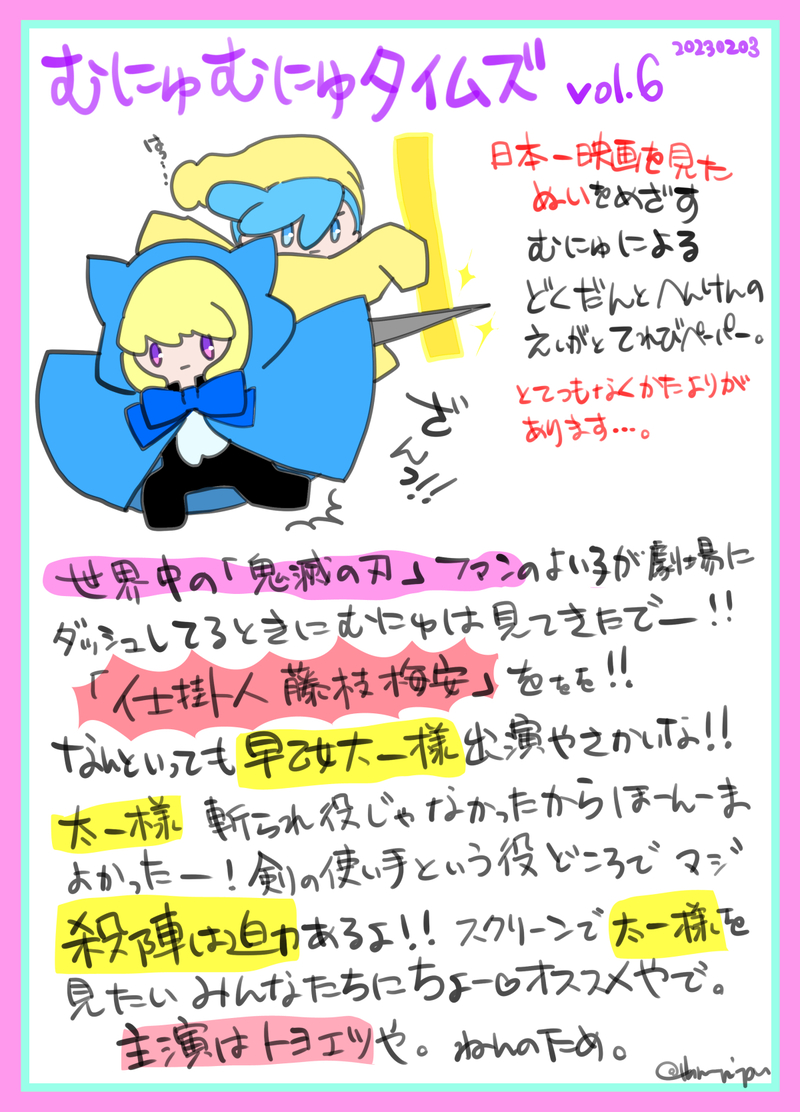 むにゅむにゅタイムズ vol.6
20230203
はっ…
日本一映画を見た
ぬいをめざす
むにゅによる
どくだんとへんけんの
えいがとてれびペーパー。
とてつもなくかたよりが
あります…。
ざんっ!!
世界中の「鬼滅の刃」ファンのよい子が劇場に
ダッシュしてるときにむにゅは見てきたでー!!
「仕掛人 藤枝梅安」をををを!!
なんといっても早乙女太一様出演やさかいな!!
太一様 斬られ役じゃなかったからほーんーま
よかったー!剣の使い手という役どころでマジ
殺陣は迫力あるよ!! スクリーンで太一様を
見たいみんなたちにちょー♡オススメやで。
主演はトヨエツや。ねんのため。